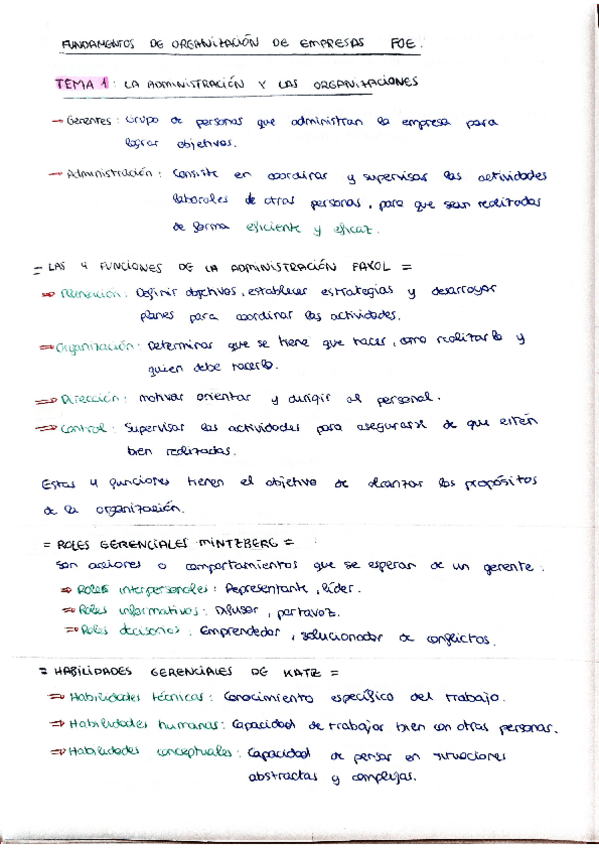 FUNDAMENTOS DE ORGANIZACIÓN DE EMPRESAS FOE.
TEMA 1: LA ADMINISTRACIÓN Y LAS ORGANIZACIONES
→ Gerentes: Grupo de personas que administran la empresa para
lograr objetivos.
→ Administración: Consiste en coordinar y supervisar las actividades
laborales de otras personas, para que sean realizadas
de forma eficiente y eficaz.
= LAS 4 FUNCIONES DE LA ADMINISTRACIÓN FAYOL =
⇒ Planeación: Definir objetivos, establecer estrategias y desarroyar
planes para coordinar las actividades.
⇒ Organización: Determinar que se tiene que hacer, como realizarlo y
quien debe hacerlo.
⇒ Dirección: motivar orientar y dirigir al personal.
⇒ Control: Supervisar las actividades para asegurarse de que estén
bien realizadas.
Estas 4 funciones tienen el objetivo de alcanzar los propósitos
de la organización.
= ROLES GERENCIALES MINTZBERG =
Son acciones o comportamientos que se esperan de un gerente.
⇒ Roles interpersonales: Representante, líder.
⇒ Roles informativos: Difusor, portavoz.
⇒ Roles decisorios: Emprendedor, solucionador de conflictos.
= HABILIDADES GERENCIALES DE KATZ =
⇒ Habilidades técnicas: Conocimiento específico del trabajo.
⇒ Habilidades humanas: Capacidad de trabajar bien con otras personas.
⇒ Habilidades conceptuales: Capacidad de pensar en situaciones
abstractas y complejas.